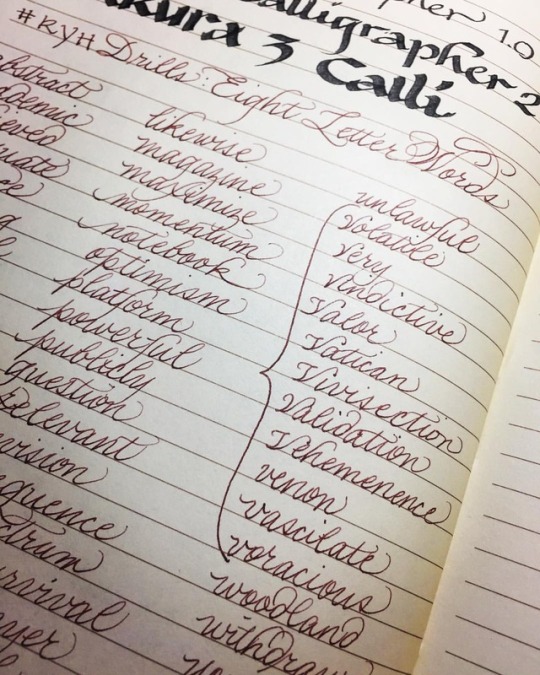 pher 1.0
Calligrapher 2
kura 3 Calli
#RYH Drills: Eight Letter Words
stract
demic
ieved
uate
likewise
magazine
maximize
momentum
notebook
optimism
platform
powerful
publicly
question
Relevant
vision
equence
trum
rvival
yer
unlawful
volatile
very
vindictive
valor
Vatican
Vivisection
Validation
Vehemenence
venon
vascilate
voracious
woodland
withdraw